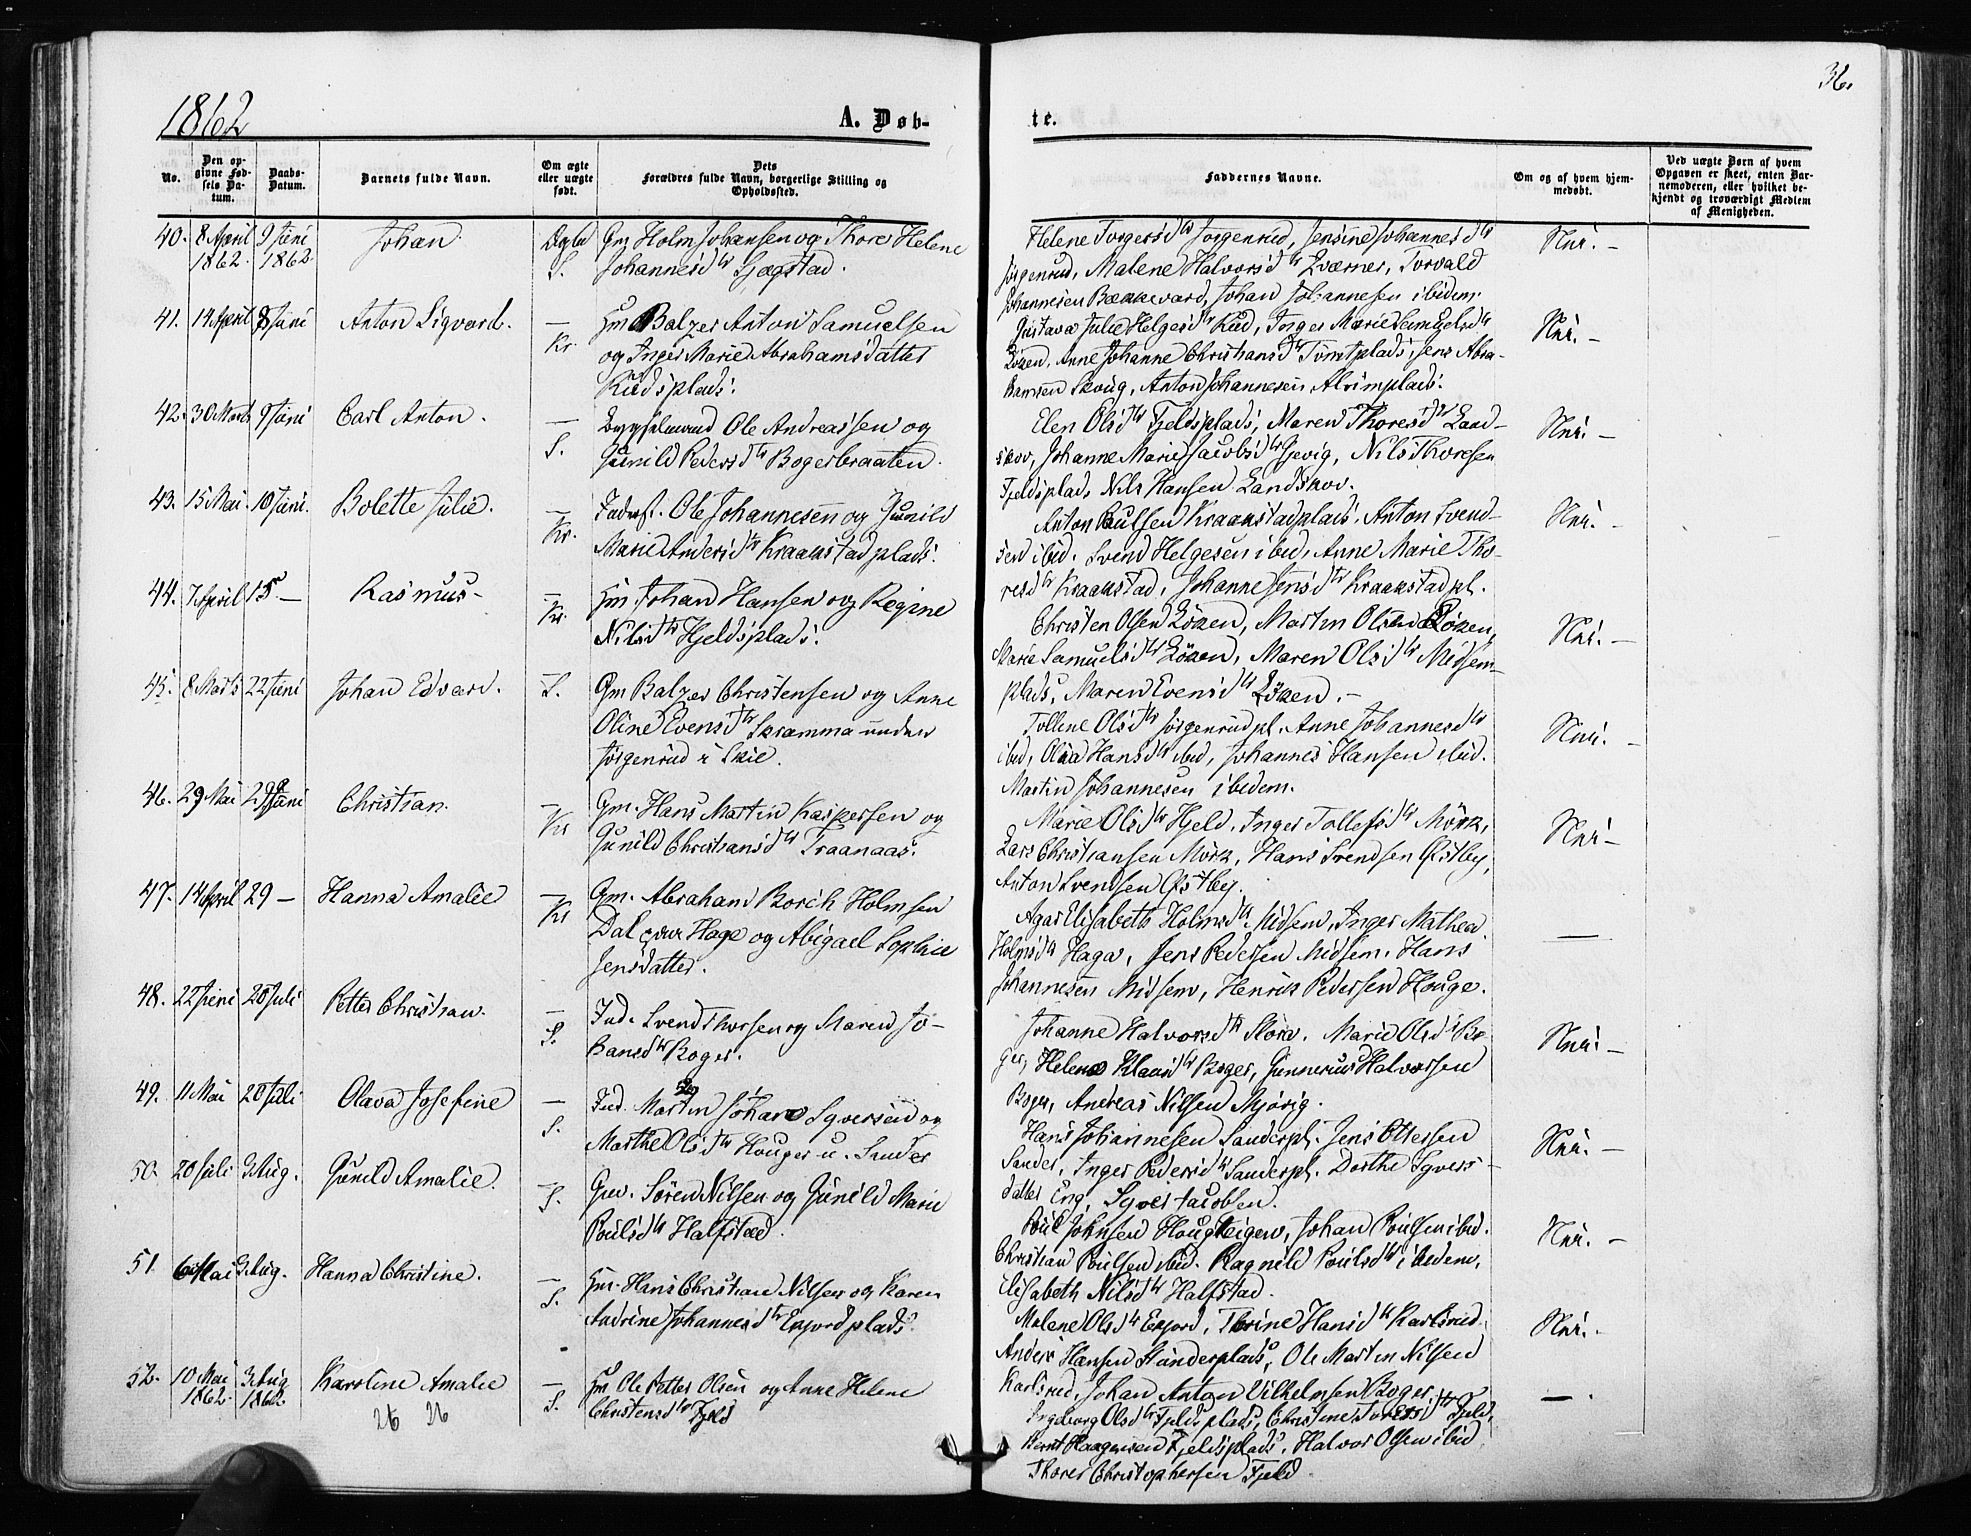 1862
A. Døb-
te.
36.
No.
Den op-
givne Fød-
sels Da-
tum.
Daabs-
Datum.
Barnets fulde Navn.
Om ægte
eller uægte
født.
Dets
Forældres fulde Navn, borgerlige Stilling og
Opholdssted.
Faddernes Navne.
Om og af hvem hjem-
medøbt.
Ved uægte Børn af hvem
Opgaven er skeet, enten Bar-
nemoderen, eller hvilket be-
kjendt og troværdigt Medlem
af Menigheden.
40. 8 April 9 Juni Johan Ægte Gm Holm Johansen og Thore Helene
1862. 1862. S. Johannesdtr
Helene Torgersdtr Jørgenrud, Jensine Johannesdtr
Jørgenrud, Malene Halvorsdtr Qværner, Torvald
Johannesen Bækkevard, Johan Johannesen ibidem.
41. 14 April 8 Juni Anton Sigvard. — Hm Balzer Anton Samuelsen
Kr. og Inger Marie Abrahamsdatter
Rudsplads.
Gustava Julie Helgesdtr Rud, Inger Marie
Løken, Anne Johanne Christiansdtr Tomtplads, Jens Abra-
hamsen Skoug, Anton Johannesen
42. 30 Marts 9 Juni Carl Anton. — Bygselmand Ole Andreassen og
S. Gunild Pedersdtr Bogerbraaten.
Elen Olsdtr Fjeldsplads, Maren Thoresdtr Land-
skov, Johanne Marie Jacobsdtr Gjevig, Nils Thoresen
Fjeldsplads Nils Hansen Landskov.
43. 15 Mai. 10 Juni. Bolette Julie. — Inderst. Ole Johannesen og Gunild
Kr. Marie Andersdtr Kraakstadplads.
Anton Poulsen Kraakstadplads. Anton Svend-
sen ibid. Svend Helgesen ibid, Anne Marie Tho-
resdtr Kraakstad, Johanne Jensdtr Kraakstadpl.
44. 7 April 15 — Rasmus — — Hm Johan Hansen og Regine
Kr. Nilsdtr Hjeldsplads.
Christen Olsen Løken, Martin Olsen Løken,
Marie Samuelsdtr Løken, Maren Olsdtr Midsem-
plads, Maren Evensdtr Løken. —
45. 8 Marts 22 Juni Johan Edvard. — S. Gm Balzer Christensen og Anne
Oline Evensdtr Skramma under
Jørgenrud i Skie.
Tollene Olsdtr Jørgenrudpl. Anne Johannesdtr
ibid, Olea Hansdtr ibid, Johannes Hansen ibid.
Martin Johannesen ibidem.
46. 29 Mai 29 Juni Christian. — Gm. Hans Martin Kaspersen og
Kr Gunild Christiansdtr Traanaas.
Marie Olsdtr Hjeld. Inger Tollefsdtr Mørk,
Lars Christiansen Mørk, Hans Svendsen Østby,
Anton Svendsen Østby.
47. 14 April 29 — Hanna Amalie — Gm. Abraham Borch Holmsen
Kr Dal Haga og Abigael Sophie
Jensdatter.
Elisabeth Holmsdtr Midsem, Inger Mathea
Holmsdtr Haga, Jens Pedersen Midsem. Hans
Johannesen Midsem, Henrik Pedersen Houge.
48. 22 Juni 20 Juli Petter Christian. — Ind. Svend Thorsen og Maren Jo-
S. hansdtr Boger.
Johanne Halvorsdtr Skørv. Marie Olsdtr Bo-
ger, Helene Klausdtr Boger, Gunnerius Halvorsen
Boger, Andreas Nilsen Mjørig.
49. 11 Mai 20 Juli Olava Josefine — Ind. Martin Johan Syversen og
S. Marthe Olsdtr Houger u. Sander
Hans Johannesen Sanderpl. Jens Ottersen
Sander, Inger Pedersdtr Sanderpl. Dorthe Syvers-
datter Eng, Syver Jacobsen.
50. 20 Juli 3 Aug. Gunild Amalie. — Grv. Søren Nilsen og Gunild Marie
S. Poulsdtr Halfstad.
Poul Johnsen Hougteigen, Johan Poulsen ibid.
Christian Poulsen ibid. Ragnild Poulsdtr ibidem,
Elisabeth Nilsdtr Halfstad.
51. 6 Mai 3 Aug. Hanna Christine. — Hm. Hans Christian Nilsen og Karen
S. Andrine Johannesdtr Exjordplads.
Malene Olsdtr Exjord, Thrine Hansdtr Karlsrud.
Anders Hansen Sanderplads, Ole Martin Nilsen
Karlsrud, Johan Anton Vilhelmsen Boger.
52. 10 Mai 3 Aug Karoline Amalie — Hm Ole Petter Olsen og Anne Helene
1862. 1862. S. Christensdtr Fjeld
26 26
Ingeborg Olsdtr Fjeldsplads, Christine Toresdtr Fjeld,
Bernt Haagensen Fjeldsplads. Halvor Olsen ibid
Thorer Christophersen Fjeld.